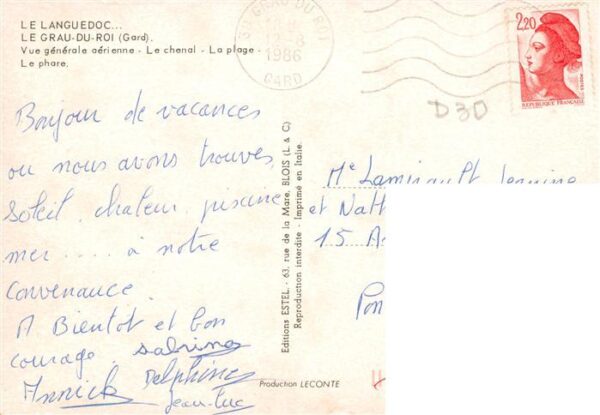 LE LANGUEDOC...
LE GRAU-DU-ROI (Gard).
Vue générale aérienne - Le chenal - La plage -
Le phare.
30 GRAU DU ROI
1986
GARD
2,20
POSTES
REPUBLIQUE FRANÇAISE
D30
Bonjour de vacances
ou nous avons trouves
soleil, chaleur, piscine
mer..... à notre
convenance.
A Bientot et bon
courage. Sabrina
Annick Delphine
Jean-Luc
Editions ESTEL - 63, rue de la Mare, BLOIS (L. & C)
Reproduction interdite - Imprimé en Italie.
Production LECONTE
Me Lamirault Jeanine
et Nath
15 A
Pon